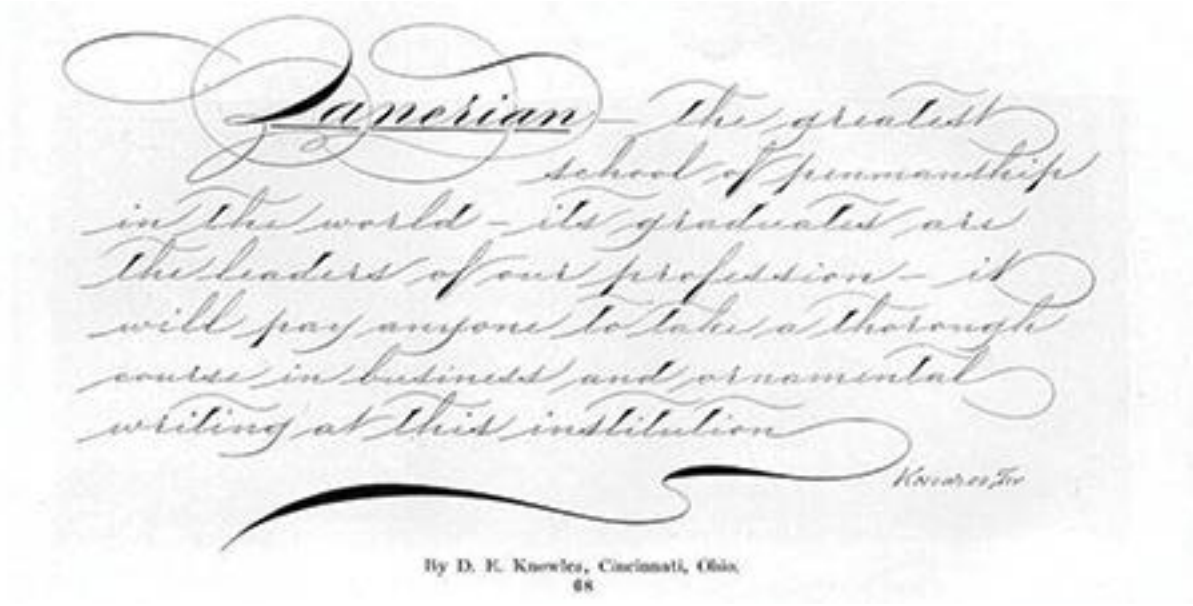 Zanerian – the greatest
school of penmanship
in the world – its graduates are
the leaders of our profession – it
will pay anyone to take a thorough
course in business and ornamental
writing at this institution
By D. E. Knowles, Cincinnati, Ohio.
68